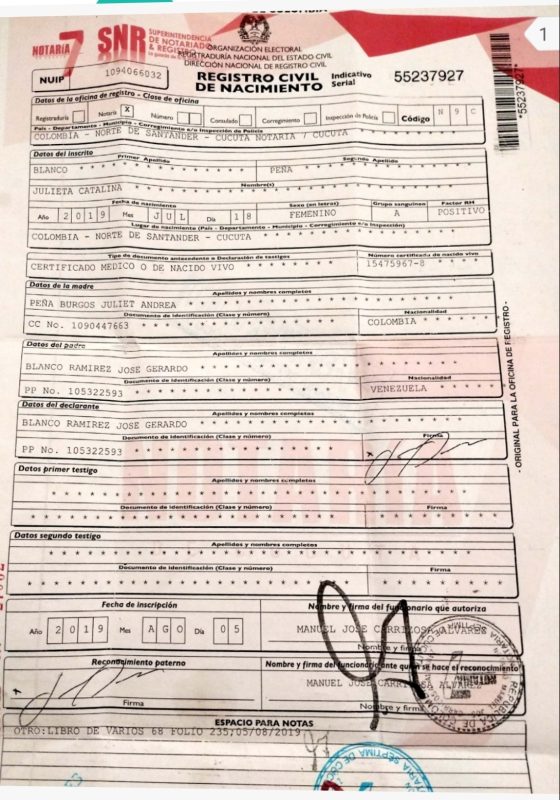 DE COLOMBIA
NOTARÍA 7
SNR SUPERINTENDENCIA DE NOTARIADO & REGISTRO
ORGANIZACIÓN ELECTORAL
REGISTRADURÍA NACIONAL DEL ESTADO CIVIL
DIRECCIÓN NACIONAL DE REGISTRO CIVIL
1
NUIP 1094066032
REGISTRO CIVIL DE NACIMIENTO
Indicativo Serial 55237927
*55237927*
Datos de la oficina de registro - Clase de oficina
Registraduría Notaría X Número Consulado Corregimiento Inspección de Policía Código N 9 C
País - Departamento - Municipio - Corregimiento e/o Inspección de Policía
COLOMBIA - NORTE DE SANTANDER - CUCUTA NOTARIA 7 CUCUTA * * * * * * * *
Datos del inscrito
Primer Apellido Segundo Apellido
BLANCO * * * * * * * * * * * * * PEÑA * * * * * * * * * * * *
Nombre(s)
JULIETA CATALINA * * * * * * * * * * * * * * * * * * * *
Fecha de nacimiento Sexo (en letras) Grupo sanguíneo Factor RH
Año 2 0 1 9 Mes J U L Día 1 8 FEMENINO A POSITIVO
Lugar de nacimiento (País - Departamento - Municipio - Corregimiento e/o Inspección)
COLOMBIA - NORTE DE SANTANDER - CUCUTA * * * * * * * * * * *
Tipo de documento antecedente o Declaración de testigos Número certificado de nacido vivo
CERTIFICADO MEDICO O DE NACIDO VIVO * * * * * * * * 15475967-8 * * * *
Datos de la madre
Apellidos y nombres completos
PEÑA BURGOS JULIET ANDREA * * * * * * * * * * * * * * * * *
Documento de identificación (Clase y número) Nacionalidad
CC No. 1090447663 * * * * * * * * * * * * COLOMBIA * * * * * *
Datos del padre
Apellidos y nombres completos
BLANCO RAMIREZ JOSE GERARDO * * * * * * * * * * * * * * * *
Documento de identificación (Clase y número) Nacionalidad
PP No. 105322593 * * * * * * * * * * * * VENEZUELA * * * * *
Datos del declarante
Apellidos y nombres completos
BLANCO RAMIREZ JOSE GERARDO * * * * * * * * * * * * * * * *
Documento de identificación (Clase y número) Firma
PP No. 105322593 * * * * * * * * * * * *
- ORIGINAL PARA LA OFICINA DE REGISTRO -
Datos primer testigo
Apellidos y nombres completos
* * * * * * * * * * * * * * * * * * * * * * * * * *
Documento de identificación (Clase y número) Firma
* * * * * * * * * * * * * * * * * * * * * * * * * *
Datos segundo testigo
Apellidos y nombres completos
* * * * * * * * * * * * * * * * * * * * * * * * * *
Documento de identificación (Clase y número) Firma
* * * * * * * * * * * * * * * * * * * * * * * * * *
Fecha de inscripción Nombre y firma del funcionario que autoriza
Año 2 0 1 9 Mes A G O Día 0 5 MANUEL JOSE CARRIZOSA ALVAREZ
Nombre y firma
Reconocimiento paterno Nombre y firma del funcionario ante quien se hace el reconocimiento
MANUEL JOSE CARRIZOSA ALVAREZ
Firma Nombre y firma
ESPACIO PARA NOTAS
OTRO:LIBRO DE VARIOS 68 FOLIO 235;05/08/2019